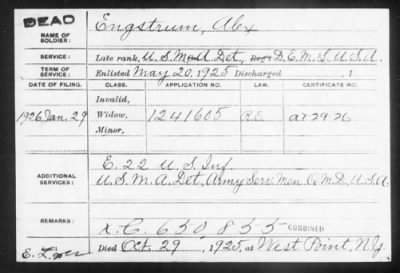 DEAD
NAME OF SOLDIER: Engstrum, Alex
SERVICE: Late rank, U.S.M.A. Det, Reg't D.E.M.L. U.S.A.
TERM OF SERVICE: Enlisted May 20, 1925 Discharged , 1
DATE OF FILING. CLASS. APPLICATION NO. LAW. CERTIFICATE NO.
Invalid,
1926 Jan. 29 Widow, 1241605
Minor,
E. 22 U.S. Inf
ADDITIONAL SERVICES: U.S.M.A. Det, Army Serv. Men Q.M.D. U.S.A.
REMARKS: 650,855 COMBINED
Died Oct. 29, 1925, at West Point, N.Y.